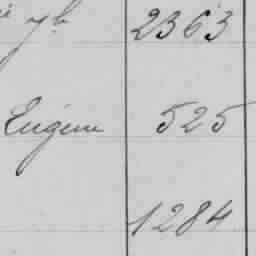 2363
Eugène 525
1284